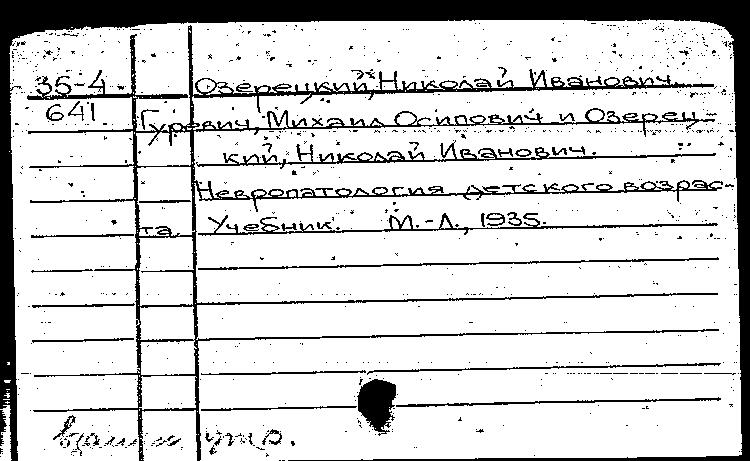 35-4 Озерецкий, Николай Иванович.
641 Гуревич, Михаил Осипович и Озерец-
кий, Николай Иванович.
Невропатология детского возрас-
та. Учебник. М.-Л., 1935.
взамен утр.